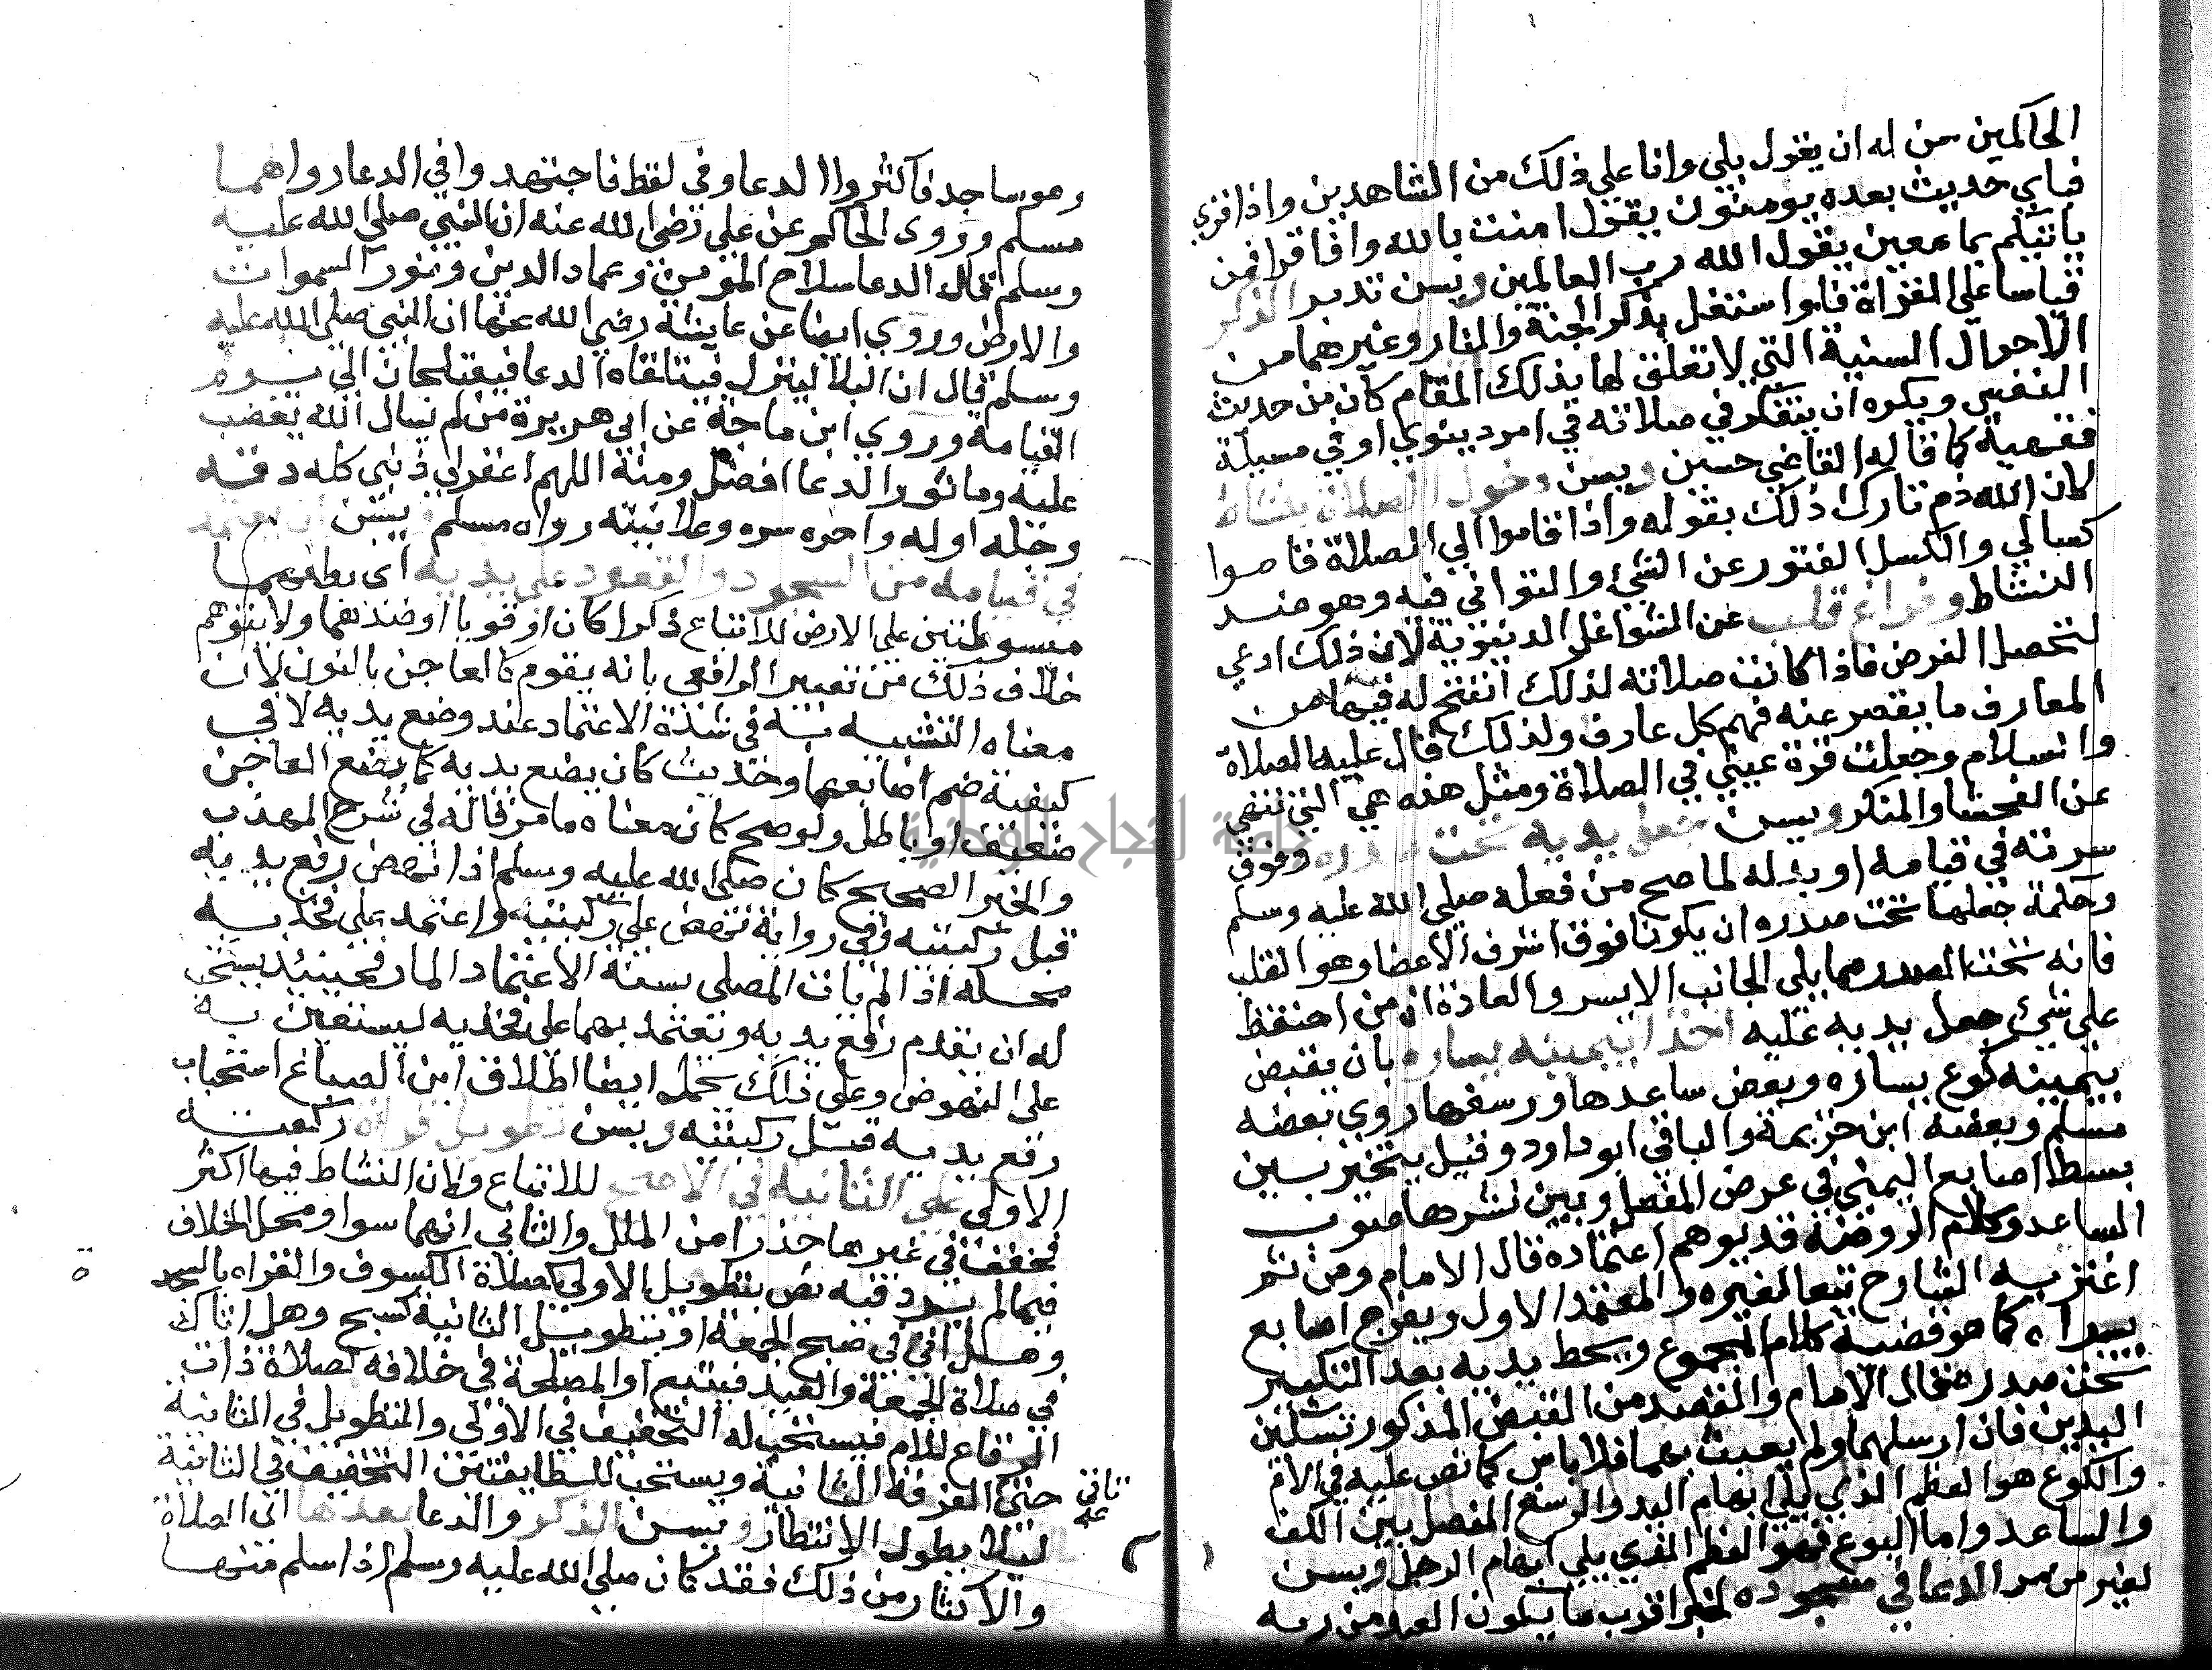 الحاكمين سن له ان يقول بلي وانا علي ذلك من الشاهدين واذا قري
فباي حديث بعده يومنون يقول امنت بالله واذا قرا فمن
ياتيكم بما معين يقول الله رب العالمين ويسن تدبر الذكر
قياسا علي القراة فلو اشتغل بذكر الجنة والنار وغيرهما من
الاحوال السنية التي لا تعلق لها بذلك المقام كان من حديث
النفس ويكره ان يتفكر في صلاته في امر دينوي او في مسيلة
فقهية كما قاله القاضي حسين ويسن دخول الصلاة بنشاط
لان الله ذم تارك ذلك بقوله واذا قاموا الي الصلاة قاموا
كسالي والكسل الفتور عن الشئ والتواني فيه وهو ضد
النشاط وفراغ قلب عن الشواغل الدنيوية لان ذلك ادعي
لتحصل الغرض فاذا كانت صلاته لذلك انفتح له فيها من
المعارف ما يقصر عنه فهم كل عارف ولذلك قال عليه الصلاة
والسلام وجعلت قرة عيني في الصلاة ومثل هذه هي التي تنهي
عن الفحشا والمنكر ويسن جعل يديه تحت صدره وفوق
سرته في قيامه او بدله لما صح من فعله صلي الله عليه وسلم
وحكمة جعلهما تحت صدره ان يكونا فوق اشرف الاعضا وهو القلب
فانه تحت الصدر مما يلي الجانب الايسر والعادة ان من احتفظ
علي شئ جعل يديه عليه اخذا بيمينه يساره بان يقبض
بيمينه كوع يساره وبعض ساعدها ورسغها روي بعضه
مسلم وبعضه ابن خزيمة والباقي ابو داود وقيل يتخير بين
بسط اصابع اليمني في عرض المفصل وبين نشرها صوب
الساعد وكلام الروضة قد يوهم اعتماده قال الامام ومن ثم
اغتر به الشارح تبعا لغيره والمعتمد الاول ويفرج اصابع
يسراه كما هو قضية كلام المجموع ويحط يديه بعد التكبير
تحت صدره قال الامام والقصد من القبض المذكور تسكين
اليدين فان ارسلهما ولم يعبث بهما فلا باس كما نص عليه في الام
والكوع هو العظم الذي يلي ابهام اليد والرسغ المفصل بين الكف
والساعد واما البوع فهو العظم الذي يلي ابهام الرجل ويسن
لغير من مر الدعا في سجوده لخبر اقرب ما يكون العبد من ربه
وهو ساجد فاكثروا الدعا وفي لفظ فاجتهدوا في الدعا رواهما
مسلم وروي الحاكم عن علي رضي الله عنه ان النبي صلي الله عليه
وسلم قال الدعا سلاح المومن وعماد الدين ونور السموات
والارض وروي ايضا عن عايشة رضي الله عنها ان النبي صلي الله عليه
وسلم قال ان البلا لينزل فيتلقاه الدعا فيعتلجان الي يوم
القيامة وروي ابن ماجة عن ابي هريرة من لم يسال الله يغضب
عليه وماثور الدعا افضل ومنه اللهم اغفر لي ذنبي كله دقه
وجله اوله واخره سره وعلانيته رواه مسلم ويسن ان يعتمد
في قيامه من السجود والقعود علي يديه اي بطنهما
مبسوطتين علي الارض للاتباع ذكرا كان او قويا او ضدهما ولا يتوهم
خلاف ذلك من تعبير الرافعي بانه يقوم كالعاجن بالنون لان
معناه التشبيه به في شدة الاعتماد عند وضع يديه لا في
كيفية ضم اصابعهما وحديث كان يضع يديه كما يضع العاجن
ضعيف او باطل ولو صح كان معناه ما مر قاله في شرح المهذب
والخبر الصحيح كان صلي الله عليه وسلم اذا نهض رفع يديه
قبل ركبتيه وفي رواية نهض علي ركبتيه واعتمد علي فخذيه
محله اذا لم يات المصلي بسنة الاعتماد المار فحينئذ يستحب
له ان يقدم رفع يديه ويعتمد بهما علي فخذيه ليستعين به
علي النهوض وعلي ذلك يحمل ايضا اطلاق ابن الصباغ استحباب
رفع يديه قبل ركبتيه ويسن تطويل قراة ركعته
الاولي علي الثانية في الاصح للاتباع ولان النشاط فيها اكثر
فخفف في غيرها حذرا من الملل والثاني انهما سوا ومحل الخلاف
فيما لم يرد فيه نص بتطويل الاولي كصلاة الكسوف والقراه بالسجد
وهل اتي في صبح الجمعة او بتطويل الثانية كسبح وهل اتاك
في صلاة الجمعة والعيد فيتبع او المصلحة في خلافه كصلاة ذات
الرقاع للامام فيستحب له التخفيف في الاولي والتطويل في الثانية
حتي تاتي الفرقة الثانية ويستحب للطايفتين التخفيف في الثانية
ليلا يطول الانتظار ويسن الذكر والدعا بعدها اي الصلاة
والاكثار من ذلك فقد كان صلي الله عليه وسلم اذا سلم منها
جامعة النجاح الوطنية